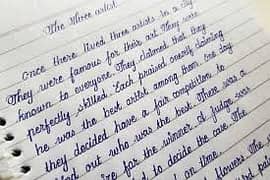 The three artist
Once there lived three artists in a city.
They were famous for their art. They were
known to everyone. They claimed that they
perfectly skilled. Each praised onerly claiming
he was the best artist among them, one day
they decided have a fair competition to
out who was the best. There was a
for the winner of judge was
to decide the case. The
on time.
flowers. The